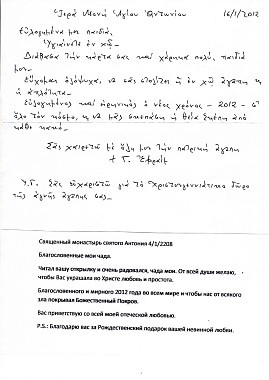 Ἱερά Μονή Ἁγίου Ἀντωνίου 16/1/2012
Εὐλογημένα μου παιδιά,
Ὑγιαίνετε ἐν Χῷ.
Διάβασα τήν κάρτα σας καί χάρηκα πολύ, παιδιά
μου.
Εὔχομαι ὁλόψυχα, νά σᾶς στολίζει ἡ ἐν Χῷ ἀγάπη καί
ἡ ἁπλότητα.
Εὐλογημένος καί εἰρηνικός ὁ νέος χρόνος - 2012 - σ'
ὅλο τόν κόσμο, καί νά μᾶς σκεπάσει ἡ Θεία Σκέπη ἀπό
κάθε κακό.
Σᾶς χαιρετῶ μέ ὅλη μου τήν πατρική ἀγάπη
+ Γ. Ἐφραίμ
Υ.Γ. Σᾶς εὐχαριστῶ γιά τό Χριστουγεννιάτικο δῶρο
τῆς ἁγνῆς ἀγάπης σας.
Священный монастырь святого Антония 4/1/2208
Благословенные мои чада.
Читал вашу открылку и очень радовался, чада мои. От всей души желаю,
чтобы Вас украшала во Христе любовь и простота.
Благословенного и мирного 2012 года во всем мире и чтобы нас от всякого
зла покрывал Божественный Покров.
Вас приветствую со всей моей отеческой любовью.
P.S.: Благодарю вас за Рождественский подарок вашей невинной любви.